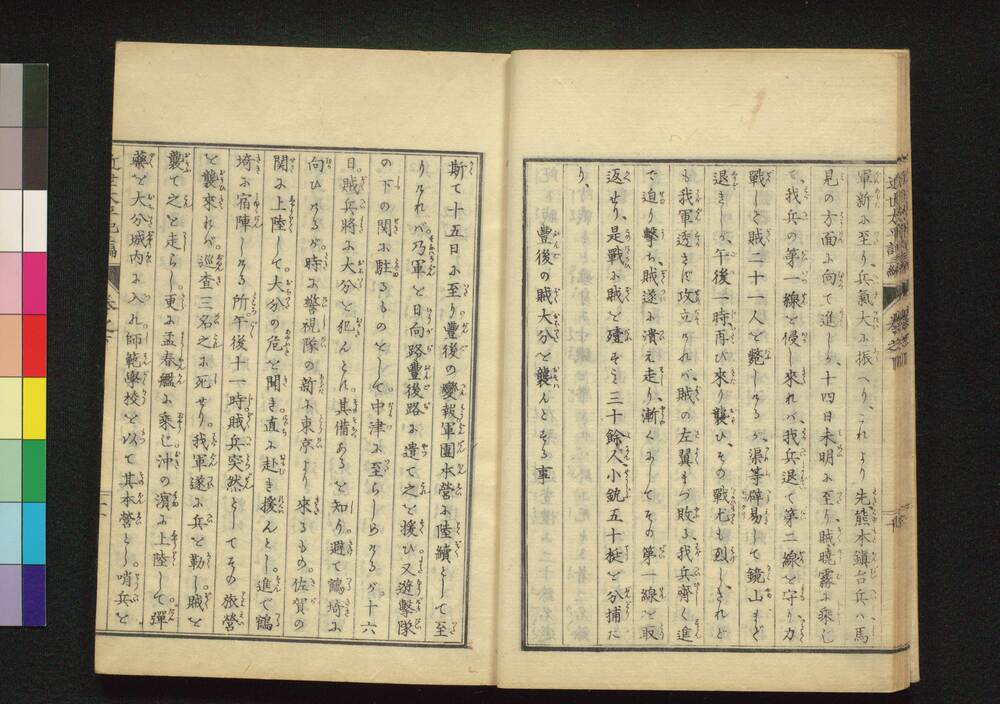 軍新に至り、兵氣大に振へり、これより先熊本鎮台兵ハ馬
見の方面に向て進しが十四日未明に至り賊曉霧に乗じ
て、我兵の第一線を侵し来れバ、我兵退て第二線を守り力
戦して賊二十一人を斃しけるが、渠等辟易して鏡山まで
退きしが、午後一時再び来り襲ひ、その戦尤も烈し、されど
も我軍透さず攻立けれバ、賊の左翼まづ敗る、我兵齊く進
で迫り撃ち、賊遂に潰え走り、漸くにしてその第一線を取
返せり、是戦に賊を殪すこと三十餘人小銃五十挺を分捕た
り、
豊後の賊大分を襲んとする事
斯て十五日に至り豊後の變報軍團本營に陸續として至
りけれバ乃軍を日向路豊後路に遣て之を援ひ又遊撃隊
の下の関に駐るものをして中津に至らしめけるが十六
日賊兵將に大分を犯んとす其備あるを知り避て鶴埼に
向ひけるが時に警視隊の新に東京より來るもの佐賀の
関に上陸して大分の危を聞き直に赴き援んとし進で鶴
埼に宿陣しける所午後十一時賊兵突然としてその旅營
を襲來れバ巡査三名之に死せり我軍遂に兵を勒し賊を
襲て之を走らし更に孟春艦に乗じ沖の濱に上陸して彈
藥を大分城内に入れ師範學校を以て其本營とし哨兵を